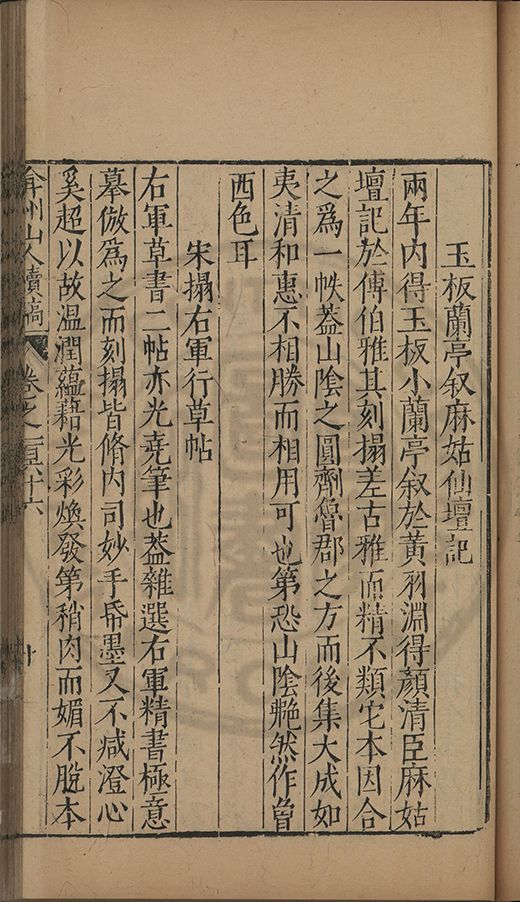 玉板蘭亭叙麻姑仙壇記
兩年内得玉板小蘭亭叙於黄羽淵得顔清臣麻姑
壇記於傅伯雅其刻搨差古雅而精不類宅本因合
之爲一帙葢山陰之圓劑魯郡之方而後集大成如
夷清和惠不相勝而相用可也第恐山陰艴然作曾
西色耳
宋搨右軍行草帖
右軍草書二帖亦光堯筆也葢雜選右軍精書極意
摹倣爲之而刻搨皆脩内司妙手帋墨又不减澄心
奚超以故温潤蘊藉光彩煥發第稍肉而媚不脫本
弇州山人續稿
卷之一百六十六
十